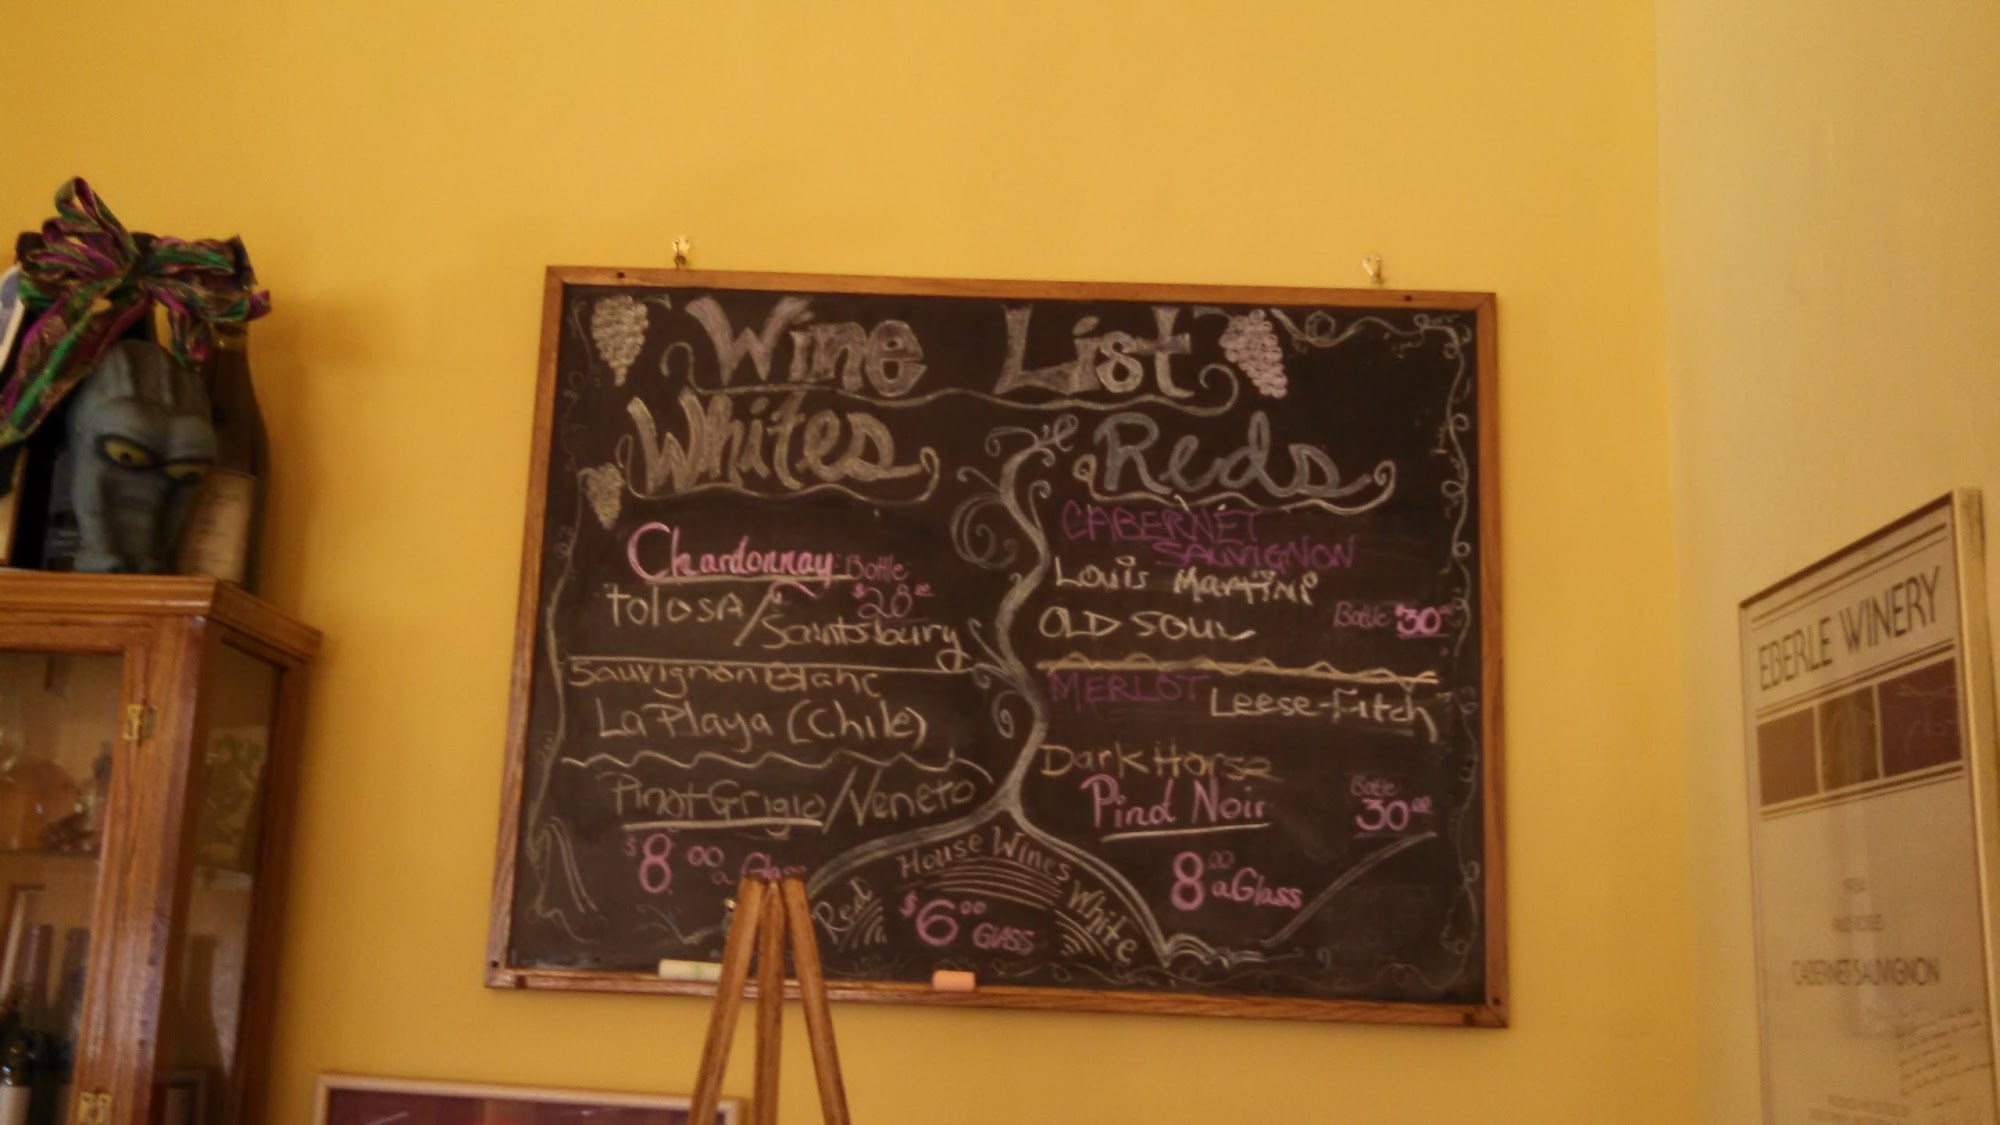 Wine List
Whites
Chardonnay Bottle
$28.00
Tolosa/Saintsbury
Sauvignon Blanc
La Playa (Chile)
Pinot Grigio/Veneto
$8.00 a Glass
Reds
CABERNET
SAUVIGNON
Louis Martini
OLD SOUL
Bottle $30.00
MERLOT Leese-Fitch
Dark Horse
Pinot Noir
Bottle
30.00
8.00 a Glass
House Wines
Red
White
$6.00 GLASS
EBERLE WINERY
CABERNET SAUVIGNON